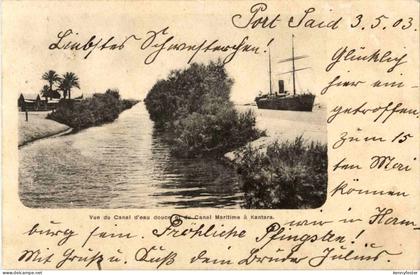 Port Said 3.5.03.
Liebstes Schwesterchen!
Glücklich
hier ein-
getroffen,
zum 15
ten Mai
können
Vue du Canal d'eau douce et du Canal Maritime à Kantara.
wir in Ham-
burg sein. Fröhliche Pfingsten!
Mit Gruß u. Kuß Dein Bruder Julius.